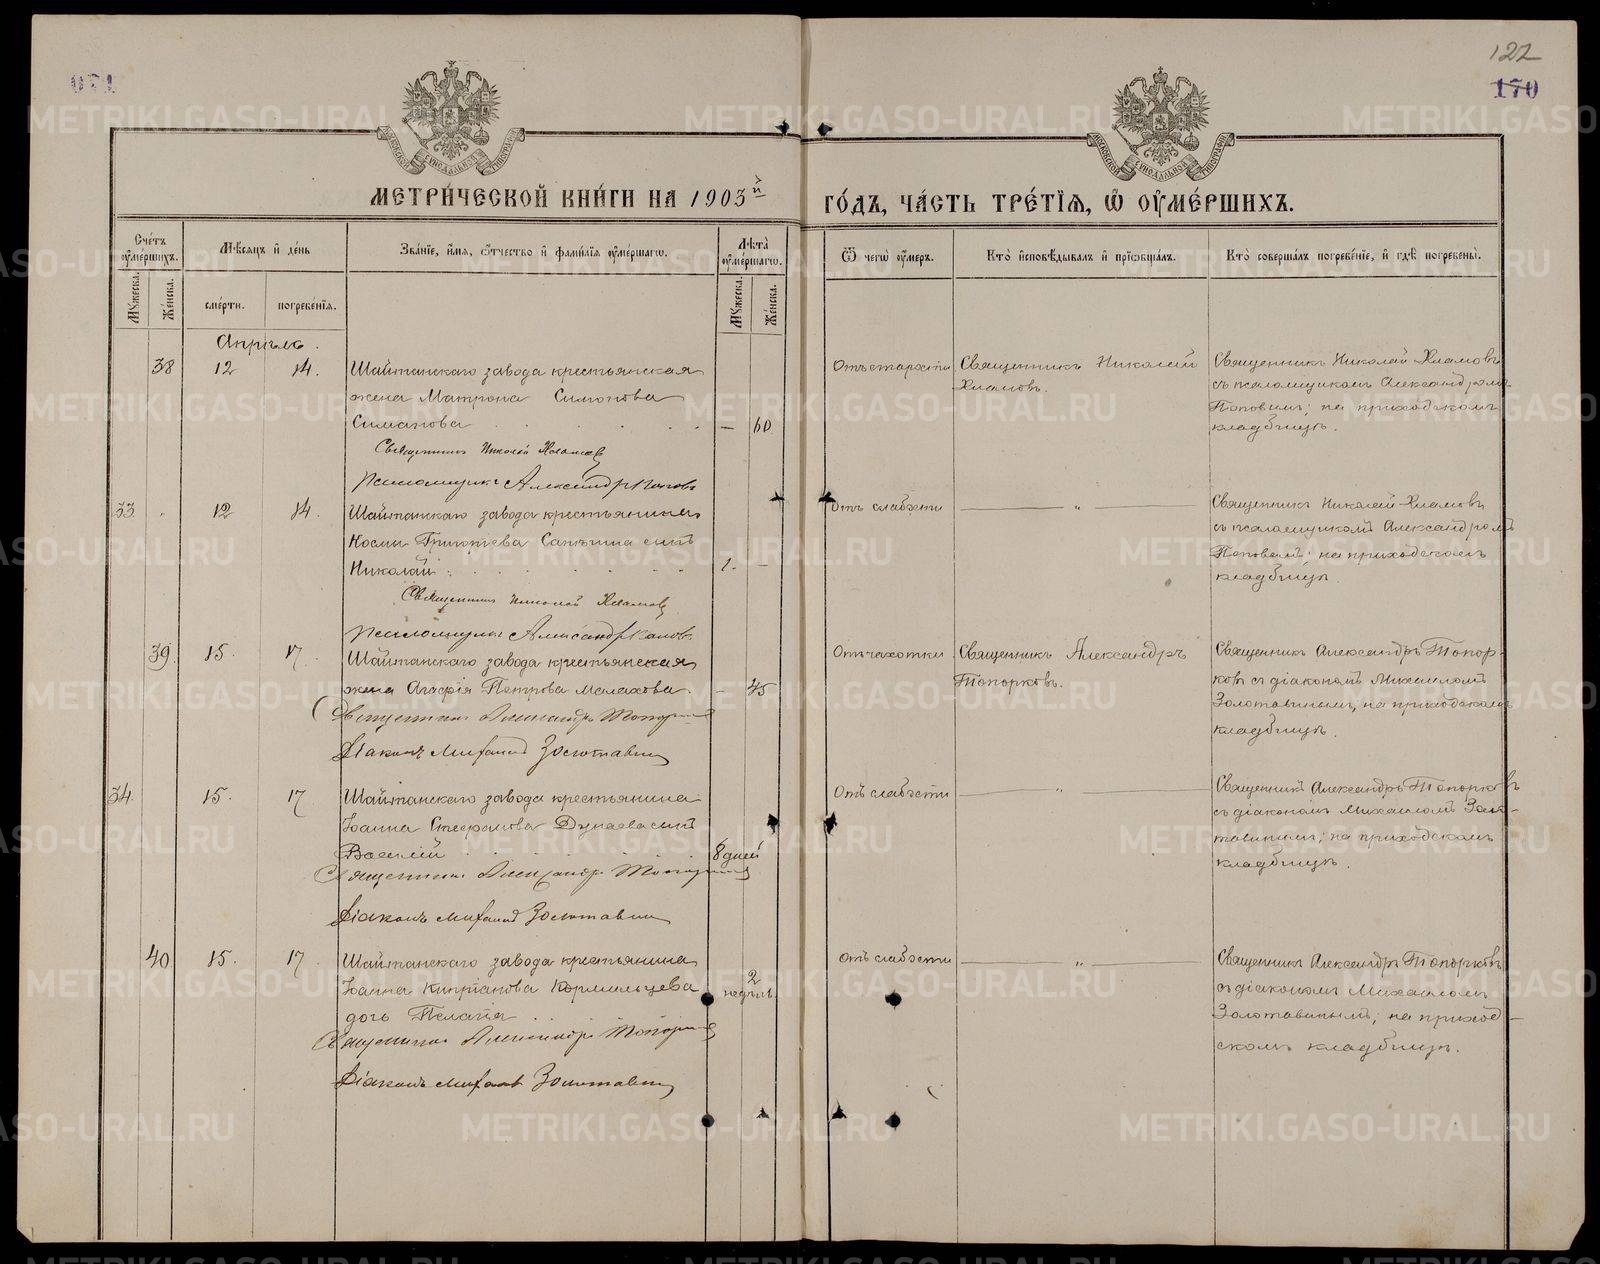 122
170
МЕТРИ́ЧЕСКОЙ КНИ́ГИ НА 1903й
ГО́ДЪ, ЧА́СТЬ ТРЕ́ТІѦ, Ѽ ОУ҆МЕ́РШИХЪ.
Сче́тъ оу҆ме́ршихъ.
Мꙋжеска.
Же́нска.
Мѣ́сѧцъ и҆ де́нь
сме́рти.
погребе́нїѧ.
Зва́нїе, и҆́мѧ, ѻ҆́тчество и҆ фами́лїѧ оу҆ме́ршагѡ.
Лѣ́та оу҆ме́ршагѡ.
Мꙋжеска.
Же́нска.
Ѿ чегѡ̀ оу҆́меръ.
Кто̀ и҆сповѣ́дывалъ и҆ прїѡбща́лъ.
Кто̀ соверша́лъ погребе́нїе, и҆ гдѣ̀ погребены̀.
Апрѣль.
38 12 14.
Шайтанскаго завода крестьянская
жена Матрона Симонова
Симанова — 60
Священникъ Николай Хламовъ
Псаломщикъ Александръ Поповъ
Отъ старости
Священникъ Николай
Хламовъ.
Священникъ Николай Хламовъ
съ псаломщикомъ Александромъ
Поповымъ; на приходскомъ
кладбищѣ.
33. " 12 14.
Шайтанскаго завода крестьянина
Космы Григорьева сынъ
Николай 1. —
Священникъ Николай Хламовъ
Псаломщикъ Александръ Поповъ
Отъ слабости
— " —
Священникъ Николай Хламовъ
съ псаломщикомъ Александромъ
Поповымъ; на приходскомъ
кладбищѣ.
39. 15. 17.
Шайтанскаго завода крестьянская
жена Агафія Петрова Малахова. — 45
Священникъ Александръ Топорковъ
Діаконъ Михаилъ Золотавинъ
Отъ чахотки
Священникъ Александръ
Топорковъ.
Священникъ Александръ Топор-
ковъ съ діакономъ Михаиломъ
Золотавинымъ, на приходскомъ
кладбищѣ.
34. 15. 17
Шайтанскаго завода крестьянина
Іоанна Стефанова Дунаева сынъ
Василій 8 дней
Священникъ Александръ Топорковъ
Діаконъ Михаилъ Золотавинъ
Отъ слабости
— " —
Священникъ Александръ Топорковъ
съ діакономъ Михаиломъ Золо-
тавинымъ; на приходскомъ
кладбищѣ.
40 15. 17.
Шайтанскаго завода крестьянина
Іоанна Кипріанова Кормильцева
дочь Пелагія 2 недѣли.
Священникъ Александръ Топорковъ
Діаконъ Михаилъ Золотавинъ
Отъ слабости
— " —
Священникъ Александръ Топорковъ
съ діакономъ Михаиломъ
Золотавинымъ; на приход-
скомъ кладбищѣ.
METRIKI.GASO-URAL.RU